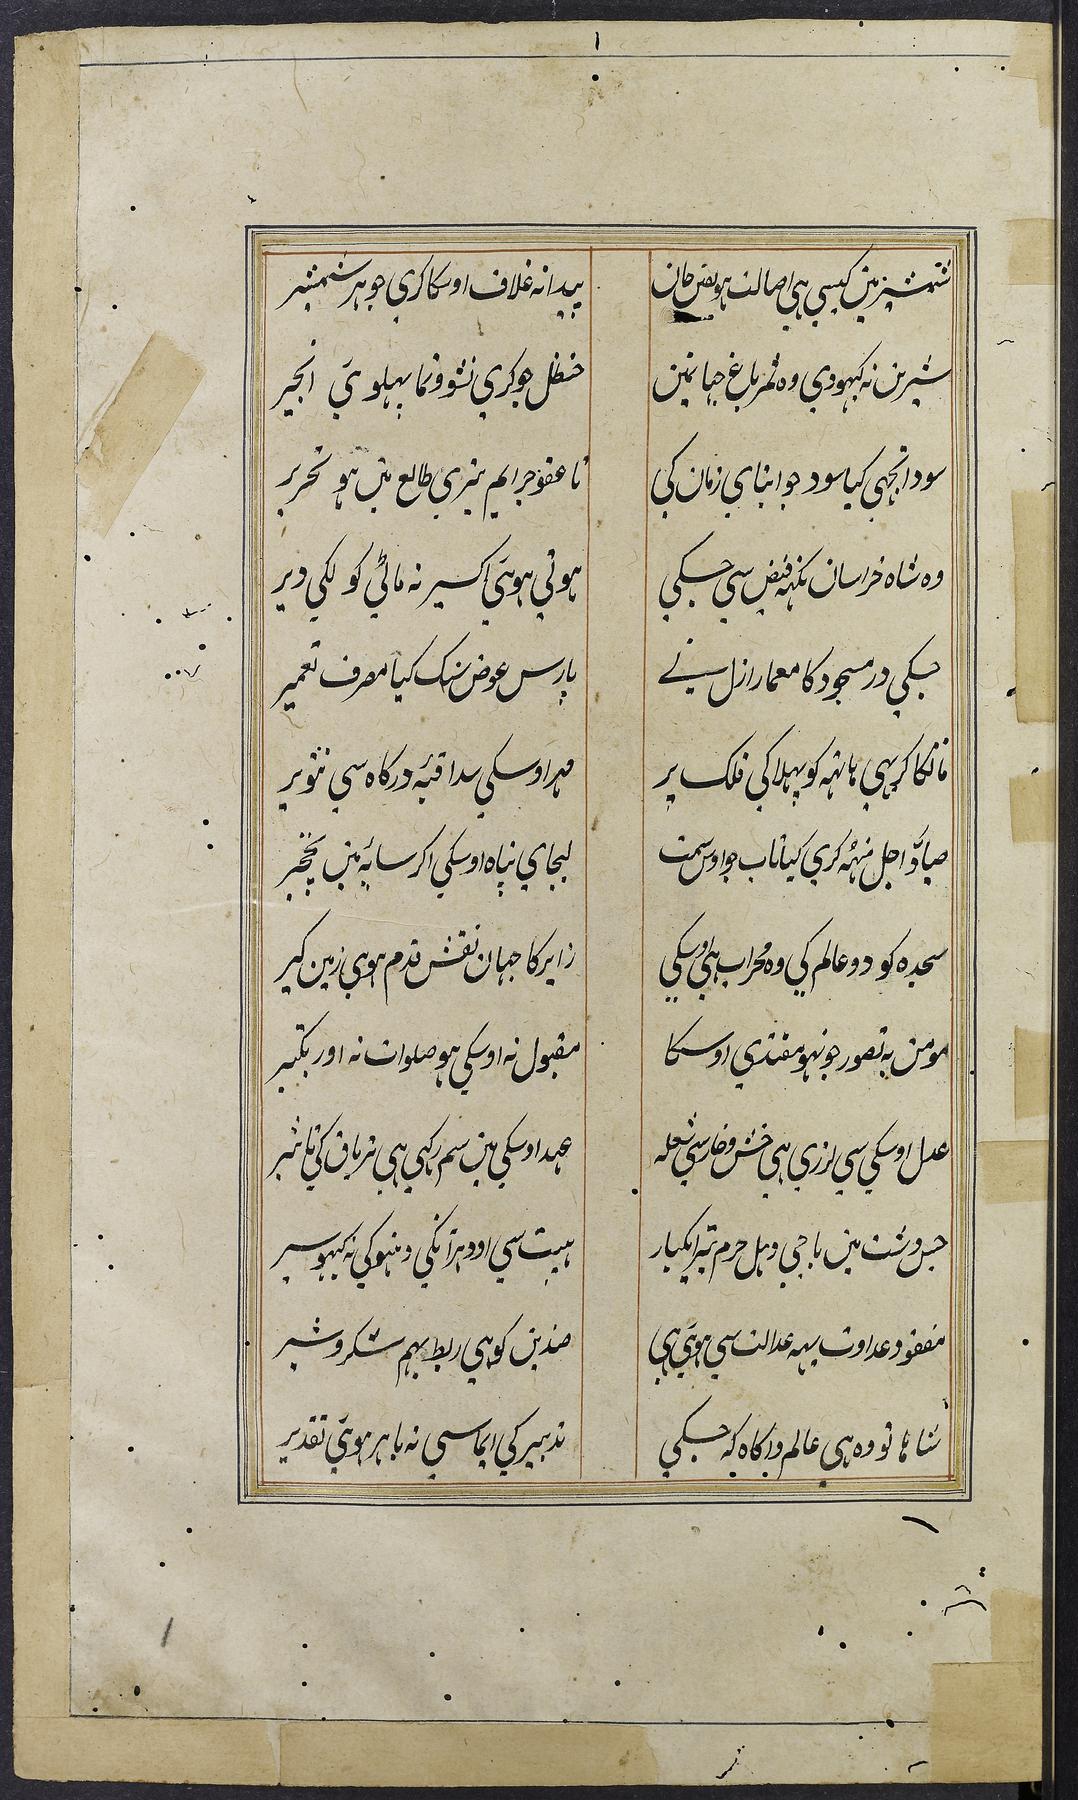 شمشیر مین کیسی ہی اصالت ہو یقین جان
پیدا نہ غلاف اوسکا کری جوہر شمشیر
شیرین نہ کبہو دی وہ ثمر باغ جہانمین
حنظل جو کری نشو و نما پہلوئی انجیر
سودا تجہی کیا سود جو ابنای زمان کی
تا عفو جرایم تیری طالع مین ہو تحریر
وہ شاہ خراسان نکہہ فیض سی جسکی
ہوتی ہوئی اکسیر نہ ماٹی کو لگی دیر
جسکی در مسجود کا معمار ازل نے
پارس عوض سنگ کیا صرف تعمیر
مانگا کری ہی ہاتہہ کو پہلا کی فلک پر
مہر اوسکی سدا قبہ درگاہ سی تنویر
صیاد اجل منہہ کری کیا تاب جو اوس سمت
لیجای پناہ اوسکی اگر سایہ مین نخچیر
سجدہ کو دو عالم کی وہ محراب ہی اوسکی
زایر کا جہان نقش قدم ہووی زمین گیر
مومن بہ تصور جو نہو مقتدی اوسکا
مقبول نہ اوسکی ہو صلوات نہ اور تکبیر
عدل اوسکی سی لرزی ہی خش و خار سی شعلہ
عہد اوسکی مین سم رکہی ہی تریاق کی تاثیر
جس دشت مین باجی دہل حرم تیرا یکبار
ہیبت سی اودہر آنکی نہ کبہو سیر
مفقود عداوت یہہ عدالت سی ہوئی ہی
ضدین کو ہی ربط بہم شکر و شیر
شاہا تو وہ ہی عالم و آگاہ کہ جسکی
تدبیر کی ایما سی نہ باہر ہوئی تقدیر